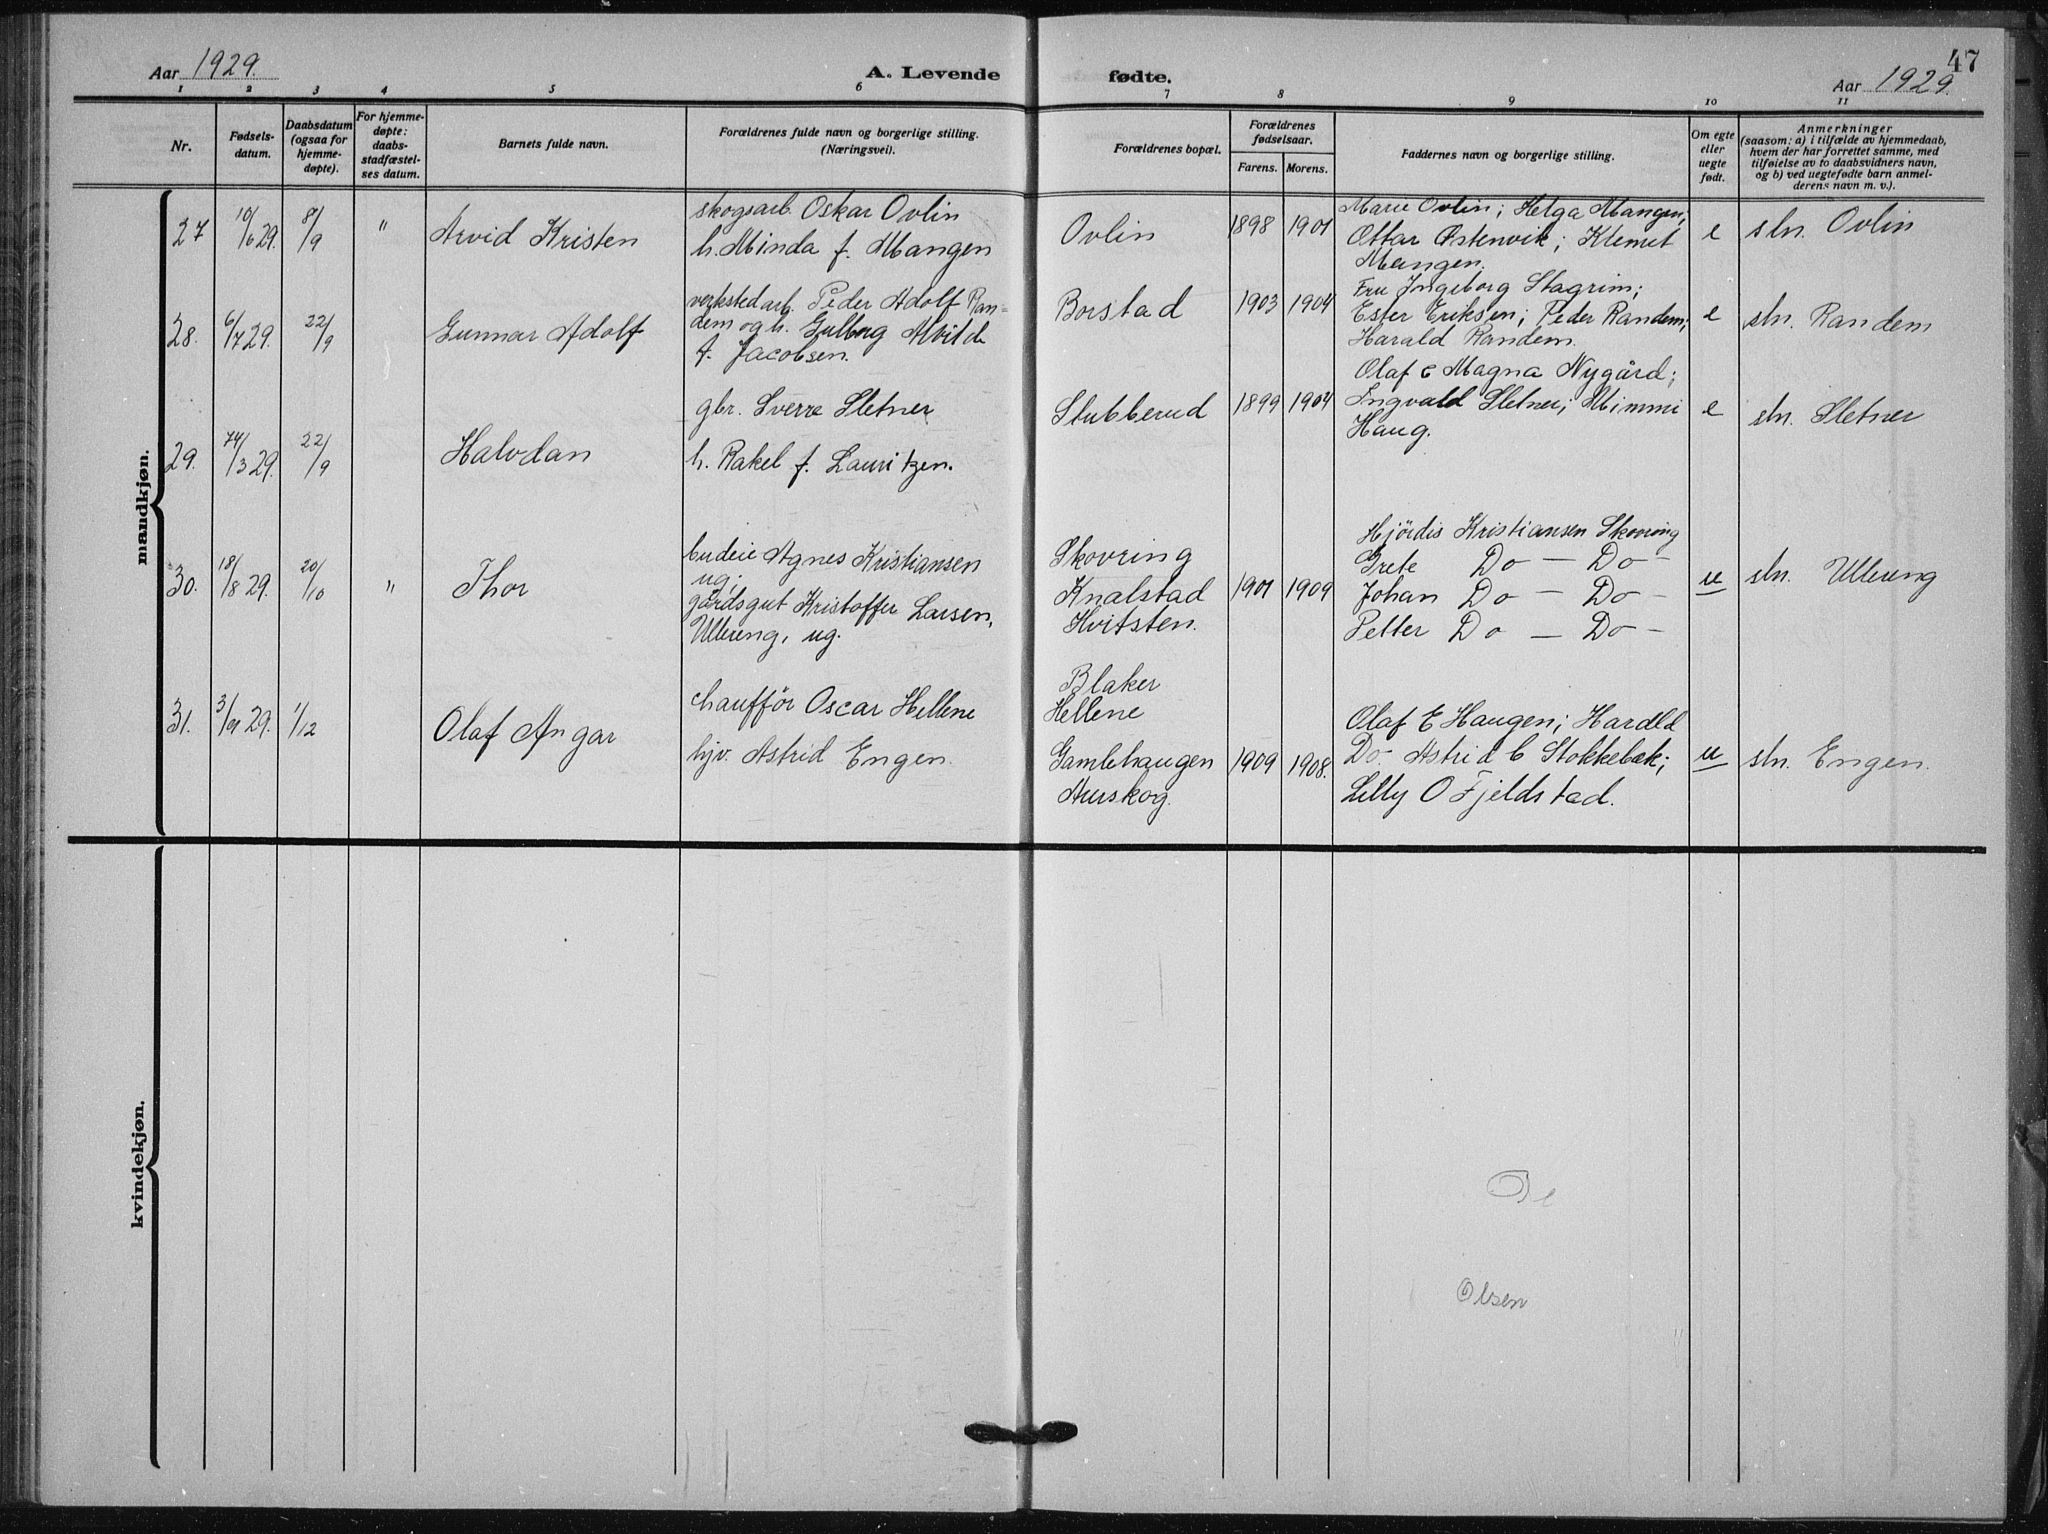 47
Aar 1929.
A. Levende fødte.
Aar 1929.
1 2 3 4 5 6 7 8 9 10 11
Nr.
Fødsels-
datum.
Daabsdatum
(ogsaa for
hjemme-
døpte).
For hjemme-
døpte:
daabs-
stadfæstel-
ses datum.
Barnets fulde navn.
Forældrenes fulde navn og borgerlige stilling.
(Næringsvei).
Forældrenes bopæl.
Forældrenes
fødselsaar.
Farens. Morens.
Faddernes navn og borgerlige stilling.
Om egte
eller
uegte
født.
Anmerkninger
(saasom: a) i tilfælde av hjemmedaab,
hvem der har forrettet samme, med
tilføielse av to daabsvidners navn,
og b) ved uegtefødte barn anmel-
derens navn m. v.).
mandkjøn.
27 10/6 29. 8/9 " Arvid Kristen
skogsarb. Oskar Ovlin
h. Minda f. Mangen
Ovlin 1898 1901
Marie Ovlin; Helga Mangen;
Ottar Østenvik; Klemet
Mangen.
e stn. Ovlin
28. 6/7 29. 22/9 Gunnar Adolf
verkstedarb. Peder Adolf Ran-
dem og h. Gulborg Alvilde
f. Jacobsen.
Borstad 1903 1904
Fru Ingeborg Stagrim;
Ester Eriksen; Peder Randem;
Harald Randem.
e stn. Randem
29. 14/3 29. 22/9 Halvdan
gbr. Sverre Sletner
h. Rakel f. Lauritzen.
Stubberud 1899 1904
Olaf E Magna Nygård;
Ingvald Sletner; Mimmi
Haug.
e stn. Sletner
30. 18/8 29. 20/10 " Thor
budeie Agnes Kristiansen
ug.
gårdsgut Kristoffer Larsen,
Ullerung, ug.
Skovring
Knalstad
Hvitsten.
1901 1909
Hjördis Kristiansen Skovring
Grete Do — Do —
Johan Do — Do —
Petter Do — Do —
u stn. Ullerung
31. 3/9 29. 1/12 Olaf Angar
chaufför Oscar Hellene
hjv. Astrid Engen.
Blaker
Hellene
Gamlehaugen
Aurskog.
1909 1908.
Olaf E Haugen; Harald
Do. Astrid C Stokkebæk;
Lilly O Fjeldstad.
u stn. Engen.
kvindekjøn.
Olsen